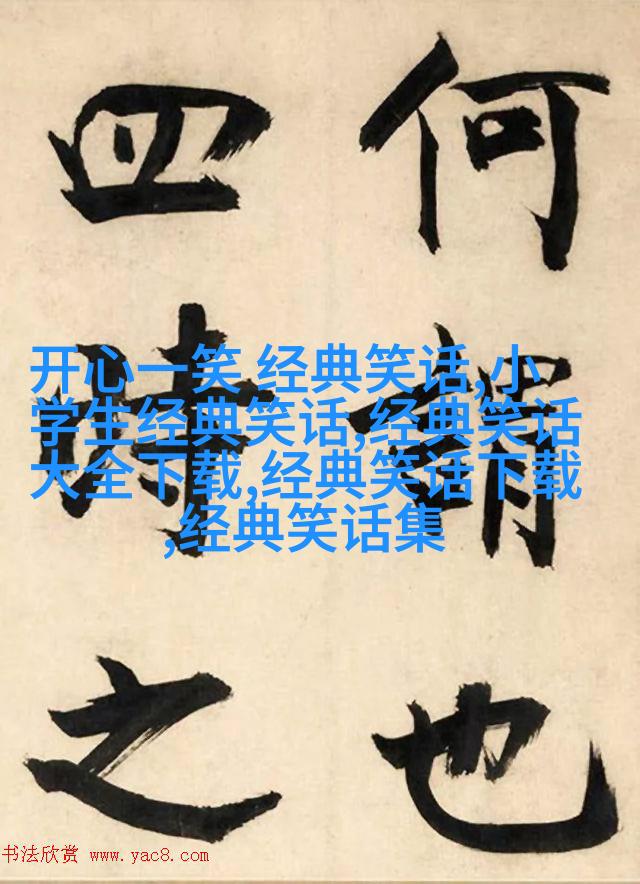 何謂也
四時之
开心一笑 经典笑话,小
学生经典笑话,经典笑话
大全下载,经典笑话下载
,经典笑话集
书法欣赏 www.yac8.com